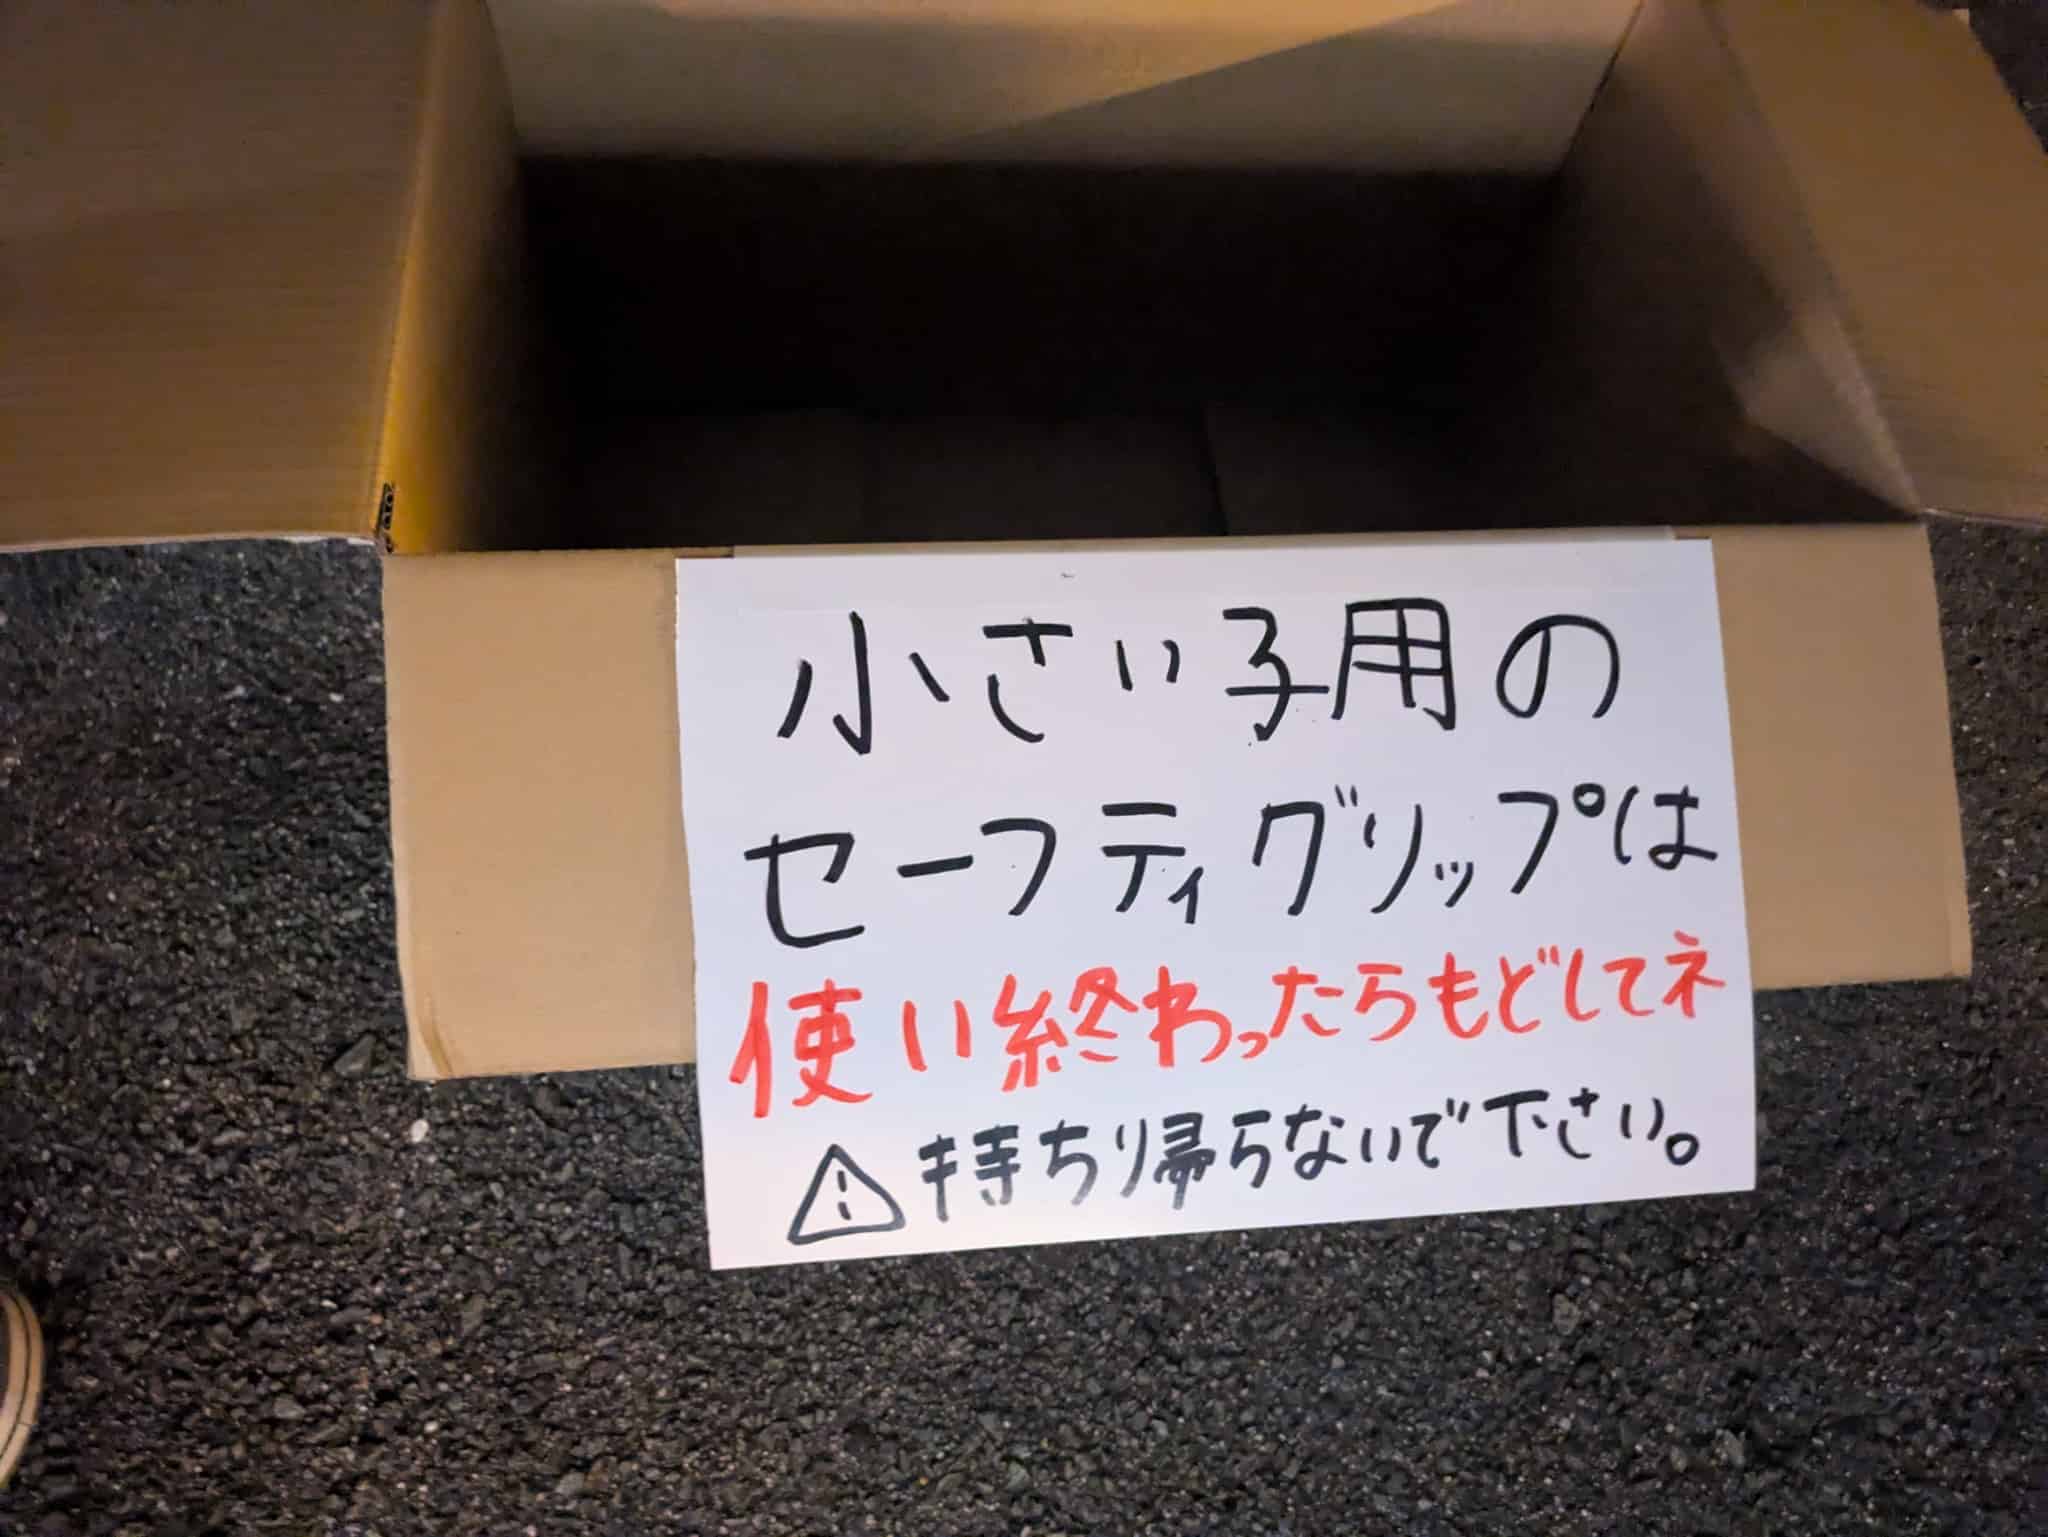 小さい子用の
セーフティグリップは
使い終わったらもどしてネ
⚠持ち帰らないで下さい。